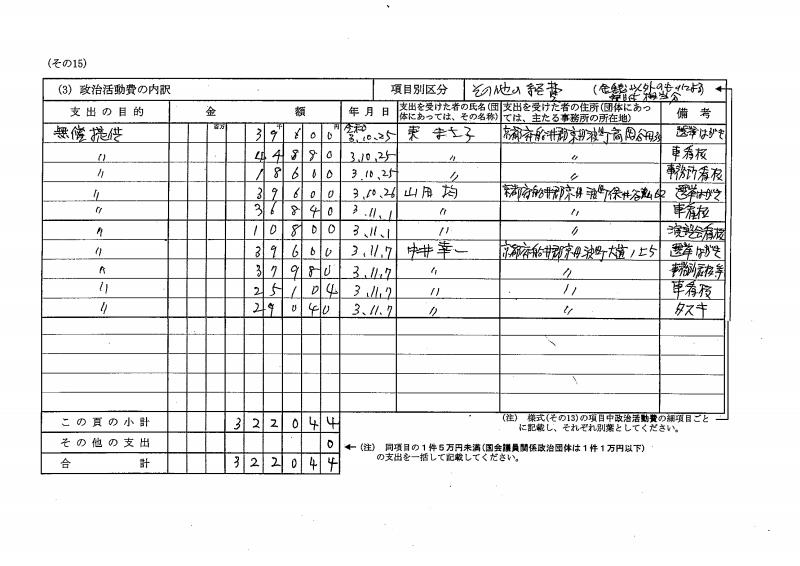 (その15)
(3) 政治活動費の内訳 項目別区分 その他の経費
支出の目的 金額 年月日 支出を受けた者の氏名(団体にあっては、その名称) 支出を受けた者の住所(団体にあっては、主たる事務所の所在地) 備考
百万 千 円
無償提供 39600 令和3.10.25 東まさ子 選挙はがき
〃 44880 3.10.25 〃 〃 車看板
〃 18600 3.10.25 〃 〃 事務所看板
〃 39600 3.10.26 山田均 選挙はがき
〃 36840 3.11.1 〃 〃 車看板
〃 10800 3.11.1 〃 〃 演説会看板
〃 39600 3.11.7 選挙はがき
〃 37980 3.11.7 〃 〃
〃 25104 3.11.7 〃 〃 車看板
〃 29040 3.11.7 〃 〃 タスキ
この頁の小計 322044
その他の支出 0
合計 322044
(注) 様式(その13)の項目中政治活動費の細項目ごと
に記載し、それぞれ別葉としてください。
←(注) 同項目の1件5万円未満(国会議員関係政治団体は1件1万円以下)
の支出を一括して記載してください。